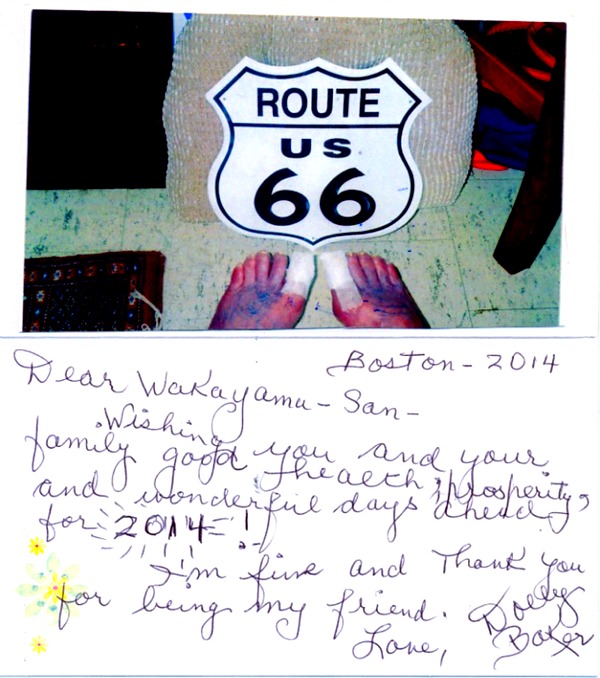 ROUTE
US
66
Boston - 2014
Dear Wakayama-San-
Wishing
family good you and your
health, prosperity,
and wonderful days ahead
for 2014!
I'm fine and Thank you
for being my friend.
Love, Dolly
Baker